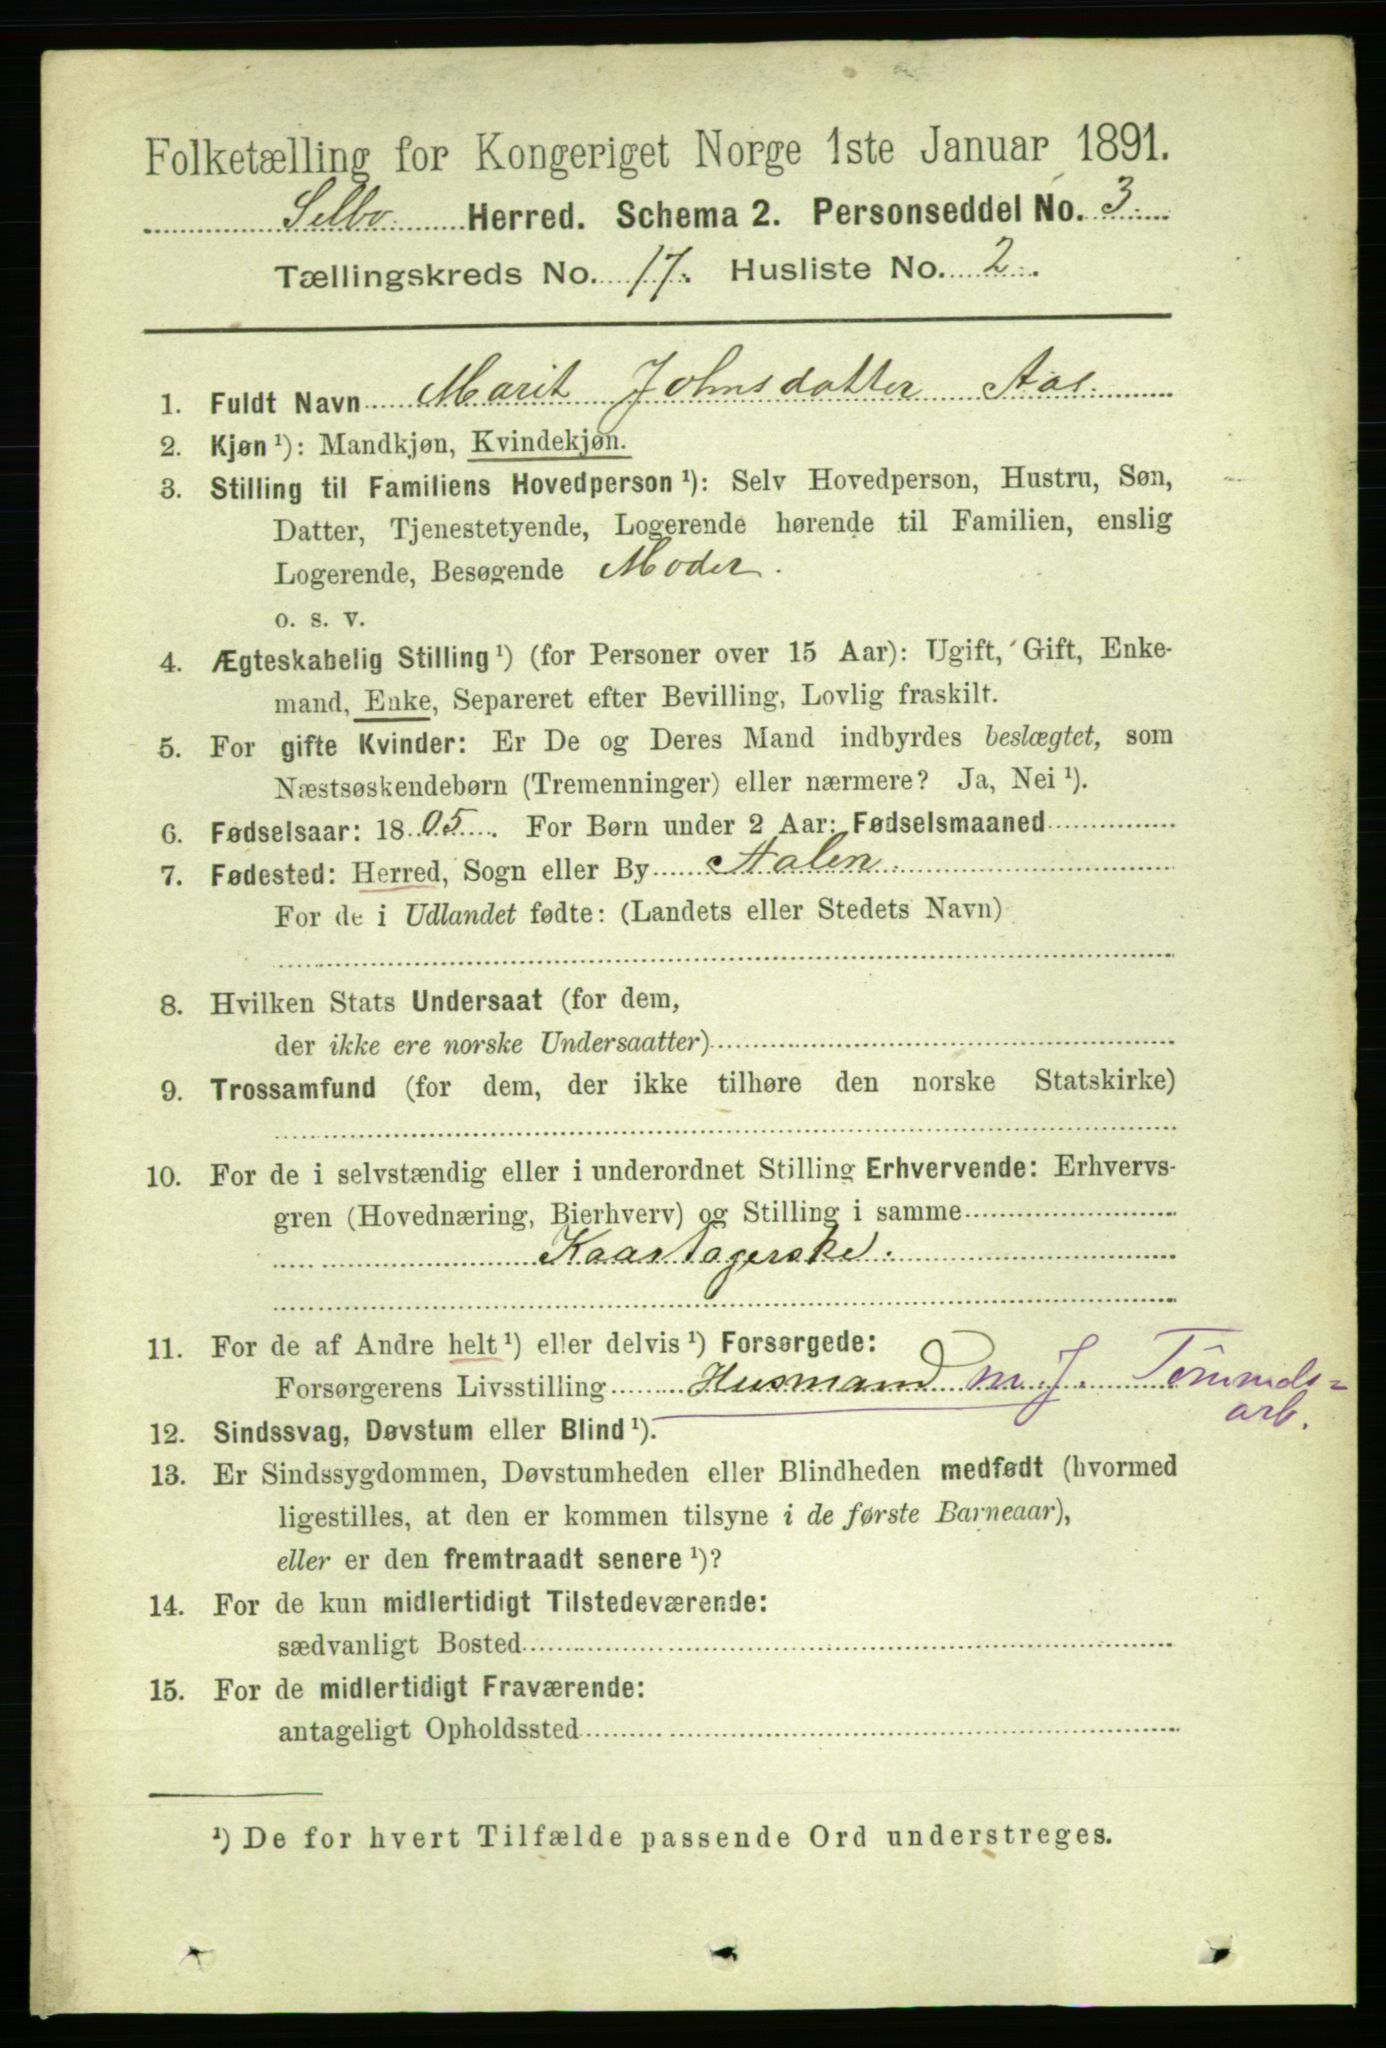 Folketælling for Kongeriget Norge 1ste Januar 1891.
Selbo Herred. Schema 2. Personseddel No. 3.
Tællingskreds No. 17. Husliste No. 2.
1. Fuldt Navn Marit Johnsdatter Aas.
2. Kjøn ¹): Mandkjøn, Kvindekjøn.
3. Stilling til Familiens Hovedperson ¹): Selv Hovedperson, Hustru, Søn,
Datter, Tjenestetyende, Logerende hørende til Familien, enslig
Logerende, Besøgende Moder.
o. s. v.
4. Ægteskabelig Stilling ¹) (for Personer over 15 Aar): Ugift, Gift, Enke-
mand, Enke, Separeret efter Bevilling, Lovlig fraskilt.
5. For gifte Kvinder: Er De og Deres Mand indbyrdes beslægtet, som
Næstsøskendebørn (Tremenninger) eller nærmere? Ja, Nei ¹).
6. Fødselsaar: 1805. For Børn under 2 Aar: Fødselsmaaned
7. Fødested: Herred, Sogn eller By Aalen.
For de i Udlandet fødte: (Landets eller Stedets Navn)
8. Hvilken Stats Undersaat (for dem,
der ikke ere norske Undersaatter)
9. Trossamfund (for dem, der ikke tilhøre den norske Statskirke)
10. For de i selvstændig eller i underordnet Stilling Erhvervende: Erhvervs-
gren (Hovednæring, Bierhverv) og Stilling i samme
Kaartagerske.
11. For de af Andre helt ¹) eller delvis ¹) Forsørgede:
Forsørgerens Livsstilling Husmand m. J. Tömmeds=
arb.
12. Sindssvag, Døvstum eller Blind ¹).
13. Er Sindssygdommen, Døvstumheden eller Blindheden medfødt (hvormed
ligestilles, at den er kommen tilsyne i de første Barneaar),
eller er den fremtraadt senere ¹)?
14. For de kun midlertidigt Tilstedeværende:
sædvanligt Bosted
15. For de midlertidigt Fraværende:
antageligt Opholdssted
¹) De for hvert Tilfælde passende Ord understreges.